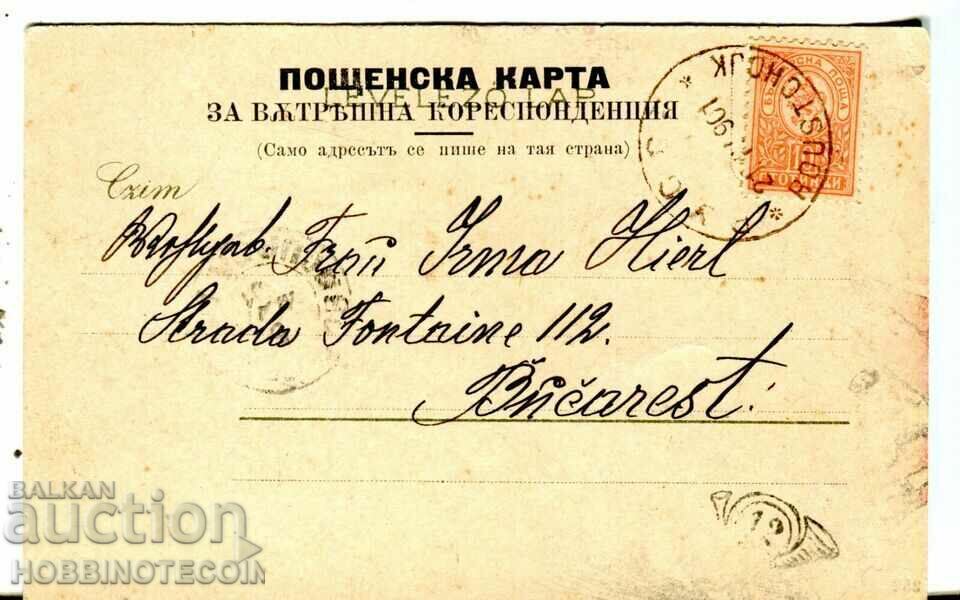 ПОЩЕНСКА КАРТА
LEVELEZŐ LAP
ЗА ВѪТРѢШНА КОРЕСПОНДЕНЦИЯ
(Само адрессътъ се пише на тая страна)
Czim
Frau Irma Hierl
Strada Fontaine 112.
Bučarest.
ROUSTCHOUK
1901
ПОЩА
12
BALKAN
auction
HOBBINOTECOIN